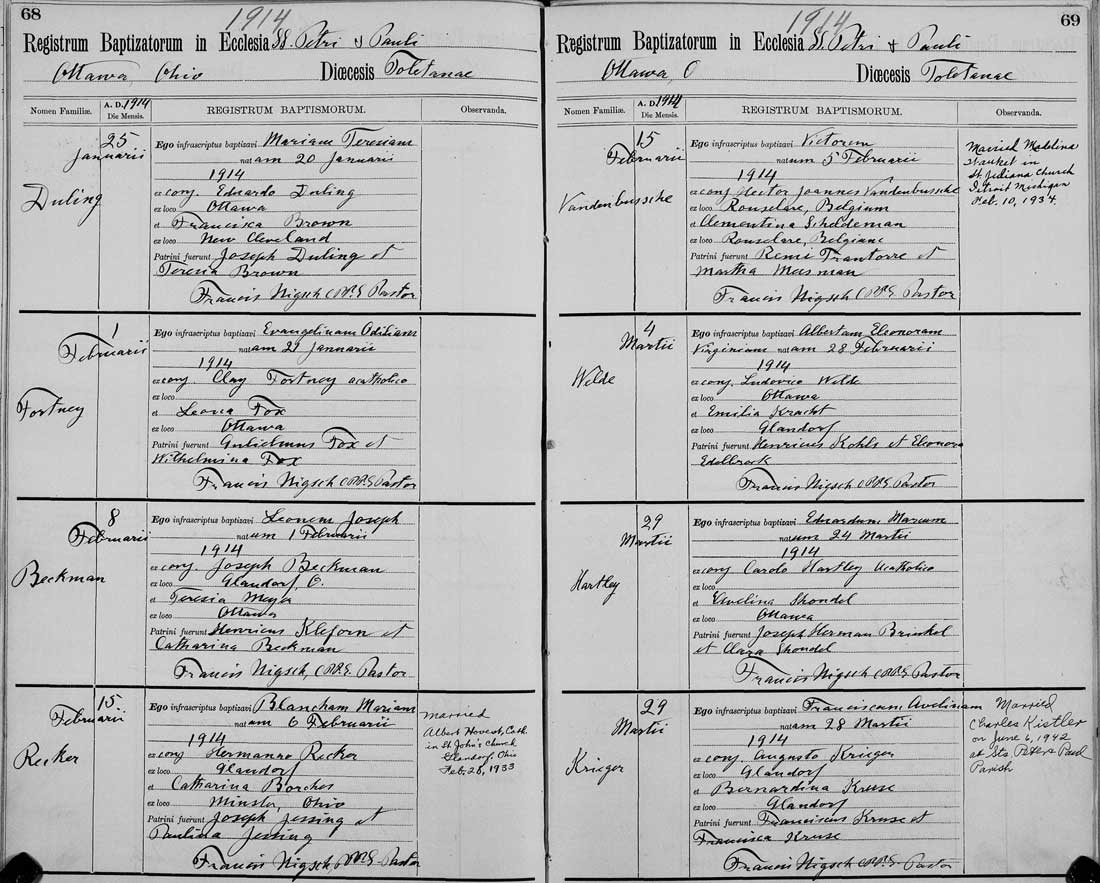 68
1914
Registrum Baptizatorum in Ecclesia SS. Petri & Pauli
Ottawa, Ohio Diœcesis Toletanae
Nomen Familiæ. A. D. 1914 Die Mensis. REGISTRUM BAPTISMORUM. Observanda.
25
Januarii
Duling
Ego infrascriptus baptizavi Mariam Teresiam
natam 20 Januarii
1914
ex conj. Eduardo Duling
ex loco Ottawa
et Francisca Brown
ex loco New Cleveland
Patrini fuerunt Joseph Duling et
Teresia Brown
Francis Nigsch C.PP.S Pastor
1
Februarii
Fortney
Ego infrascriptus baptizavi Evangelinam Odiliam
natam 21 Januarii
1914
ex conj. Clay Fortney acatholico
ex loco
et Leona Fox
ex loco Ottawa
Patrini fuerunt Gulielmus Fox et
Wilhelmina Fox
Francis Nigsch C.PP.S Pastor
8
Februarii
Beckman
Ego infrascriptus baptizavi Leonem Joseph
natum 1 Februarii
1914
ex conj. Joseph Beckman
ex loco Glandorf, O.
et Teresia Meyer
ex loco Ottawa
Patrini fuerunt Henricus Kleforn et
Catharina Beckman
Francis Nigsch, C.PP.S. Pastor
15
Februarii
Recker
Ego infrascriptus baptizavi Blancham Mariam
natam 6 Februarii
1914
ex conj Hermanno Recker
ex loco Glandorf
et Catharina Borches
ex loco Minster, Ohio
Patrini fuerunt Joseph Jessing et
Paulina Jessing
Francis Nigsch, C.PP.S. Pastor
Married
Albert Hovest, Cath.
in St John's Church
Glandorf, Ohio
Feb. 28, 1933
69
1914
Registrum Baptizatorum in Ecclesia SS. Petri & Pauli
Ottawa O Diœcesis Toletanae
Nomen Familiæ. A. D. 1914 Die Mensis. REGISTRUM BAPTISMORUM. Observanda.
15
Februarii
Vandenbussche
Ego infrascriptus baptizavi Victorem
natum 5 Februarii
1914
ex conj Hector Joannes Vandenbussche
ex loco Rouselare, Belgium
et Clementina Scheldeman
ex loco Rouselare, Belgiane
Patrini fuerunt Remi Trantorre et
Martha Masman
Francis Nigsch C.PP.S Pastor
Married Madelina
in
St Juliana Church
Detroit Michigan
Feb. 10, 1934.
4
Martii
Wilde
Ego infrascriptus baptizavi Albertam Eleonoram
Virginiam natam 28 Februarii
1914
ex conj. Ludovico Wilde
ex loco Ottawa
et Emilia Kracht
ex loco Glandorf
Patrini fuerunt Henricus Kohls et Eleonora
Edelbrock
Francis Nigsch C.PP.S Pastor
29
Martii
Hartley
Ego infrascriptus baptizavi Eduardum Marcum
natum 24 Martii
1914
ex conj Carolo Hartley Acatholico
ex loco
et Evelina Shondel
ex loco Ottawa
Patrini fuerunt Joseph Herman Brinkel
et Clara Shondel
Francis Nigsch C.PP.S Pastor
29
Martii
Krieger
Ego infrascriptus baptizavi Franciscam Avelinam
natam 28 Martii
1914
ex conj. Augusto Krieger
ex loco Glandorf
et Bernardina Kruse
ex loco Glandorf
Patrini fuerunt Franciscus Kruse et
Francisca Kruse
Francis Nigsch C.PP.S. Pastor
Married
Charles Kistler
on June 6, 1942
at Sts. Peter & Paul
Parish